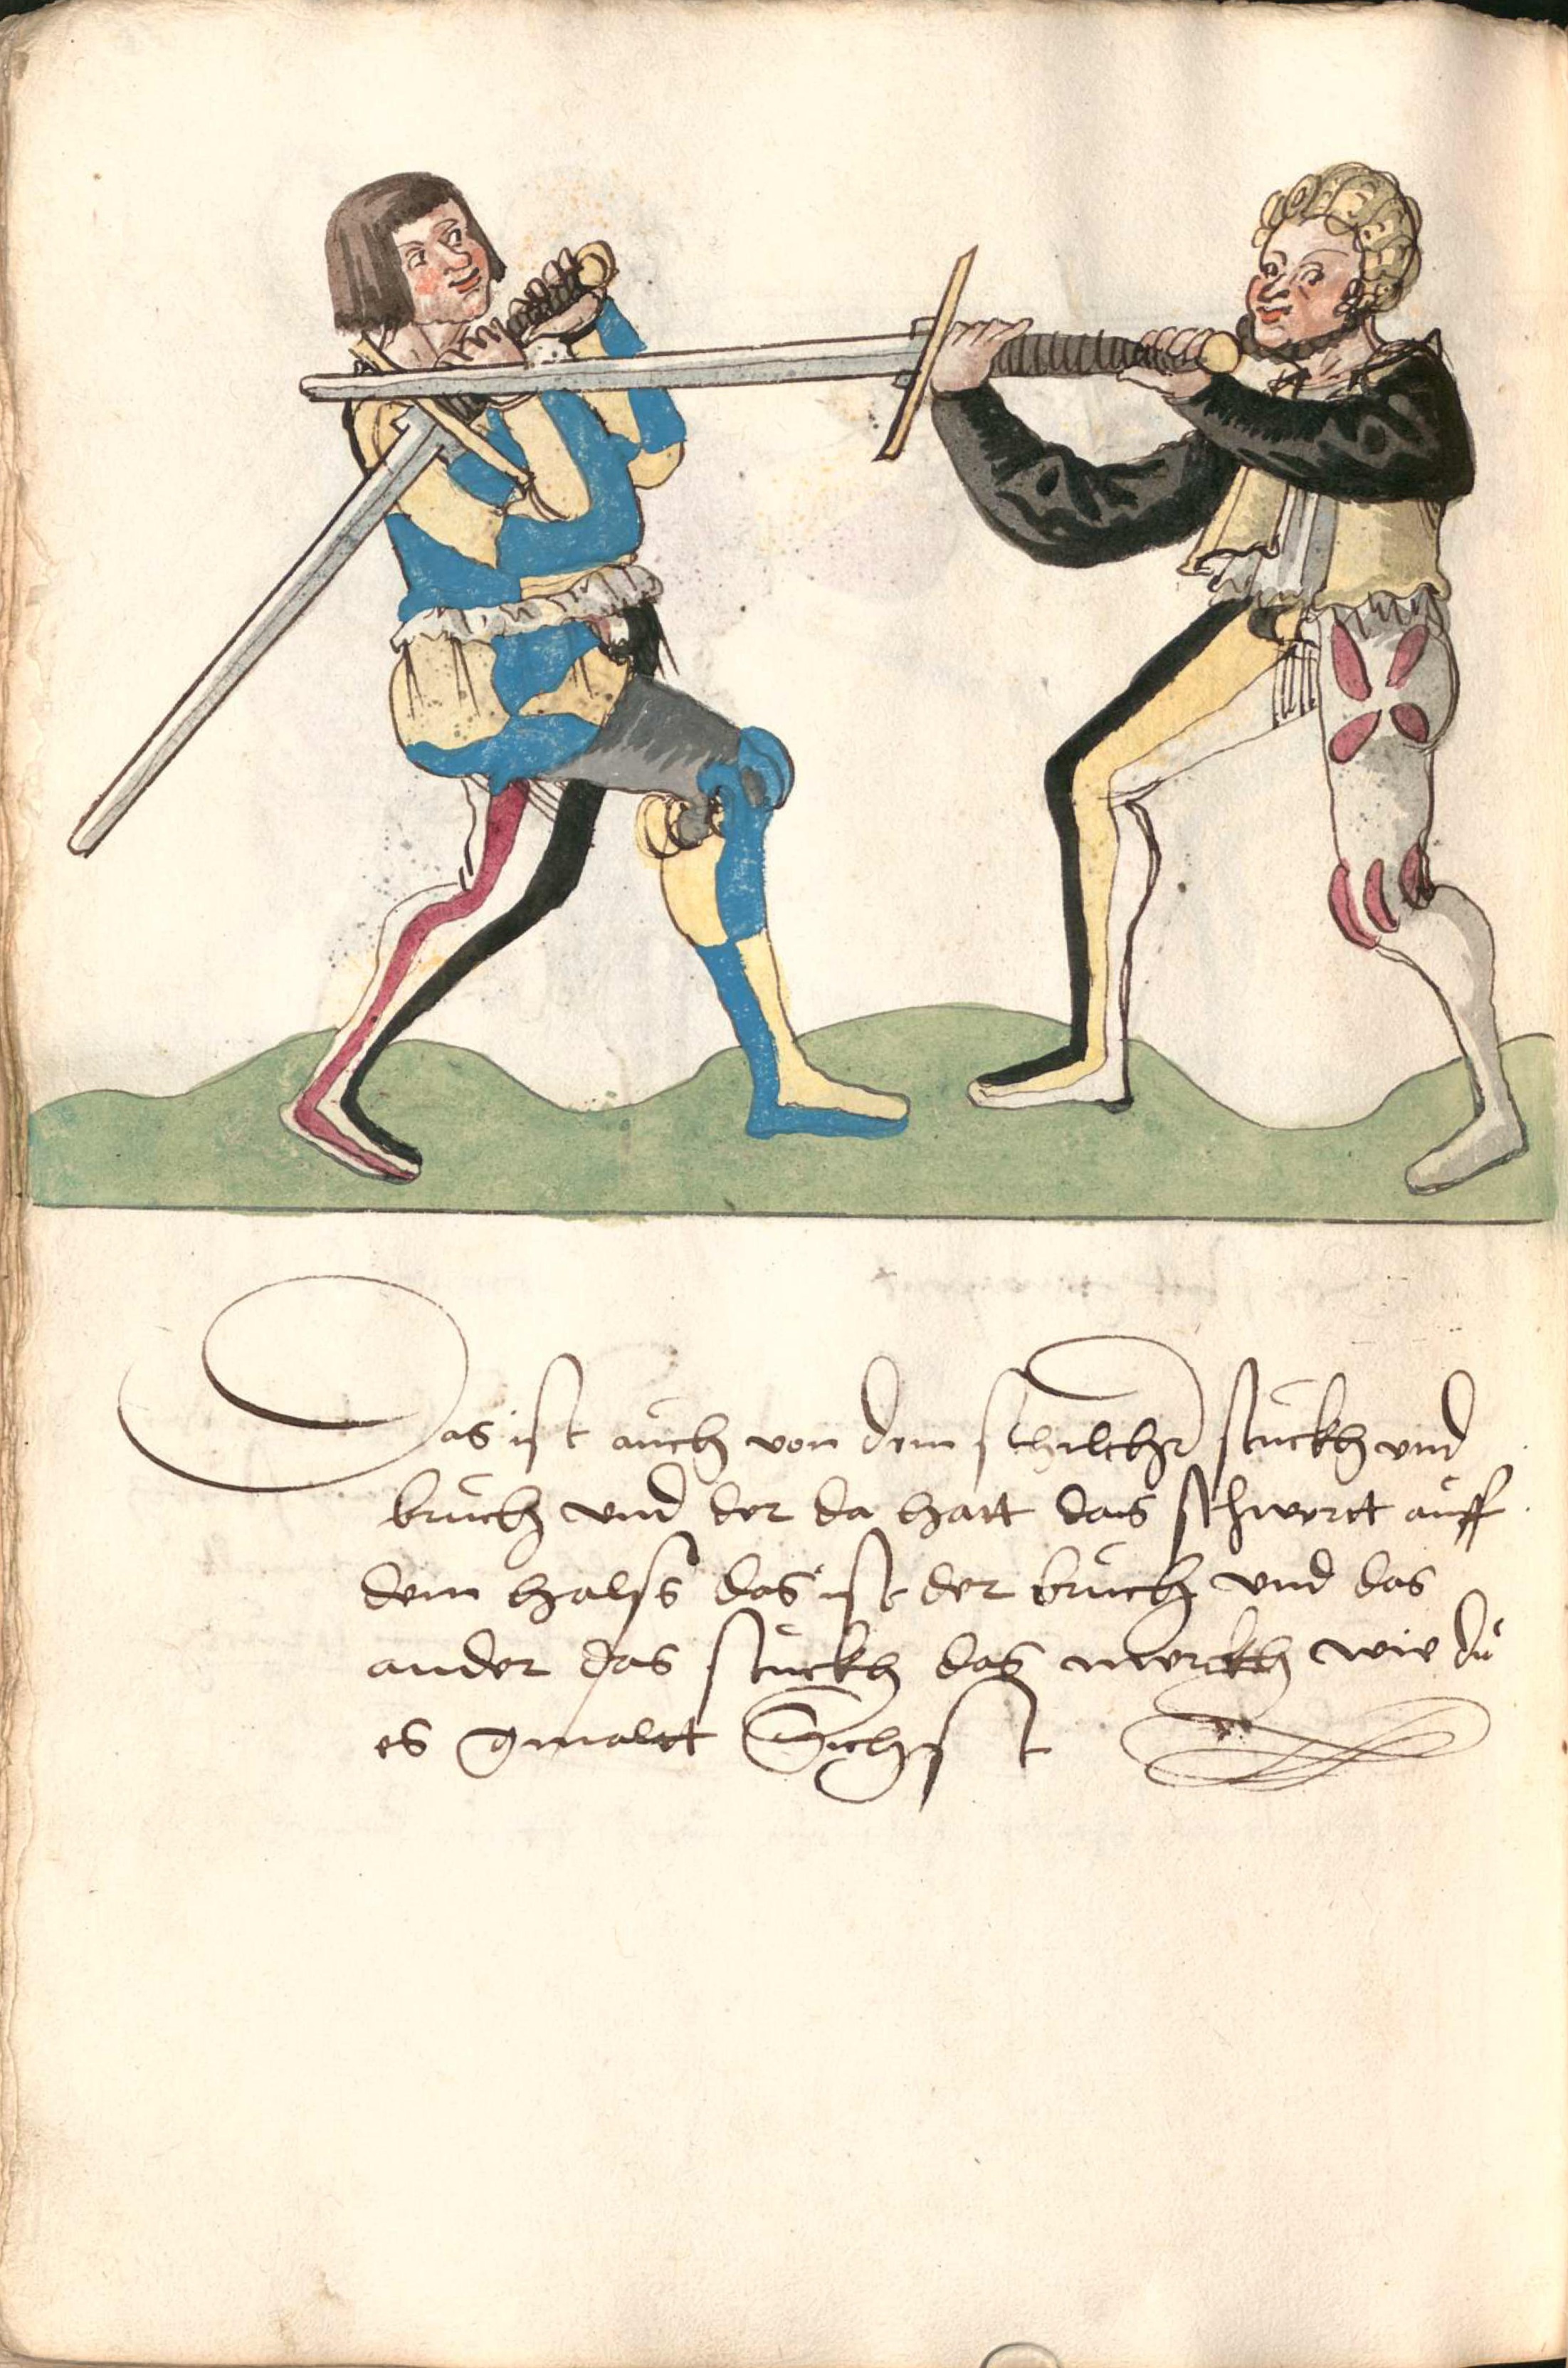 Das ist auch von dem schilcher stuckh und
bruch und der da hatt das schwertt auff
dem halss das ist der bruch und das
ander das stuckh das merckh wie du
es gmaltt Sichst